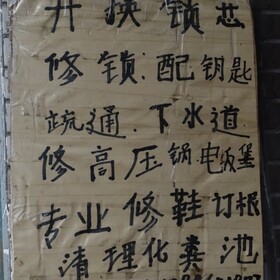 开换锁芯
修锁.配钥匙
疏通.下水道
修高压锅电饭堡
专业修鞋订根
清理化粪池